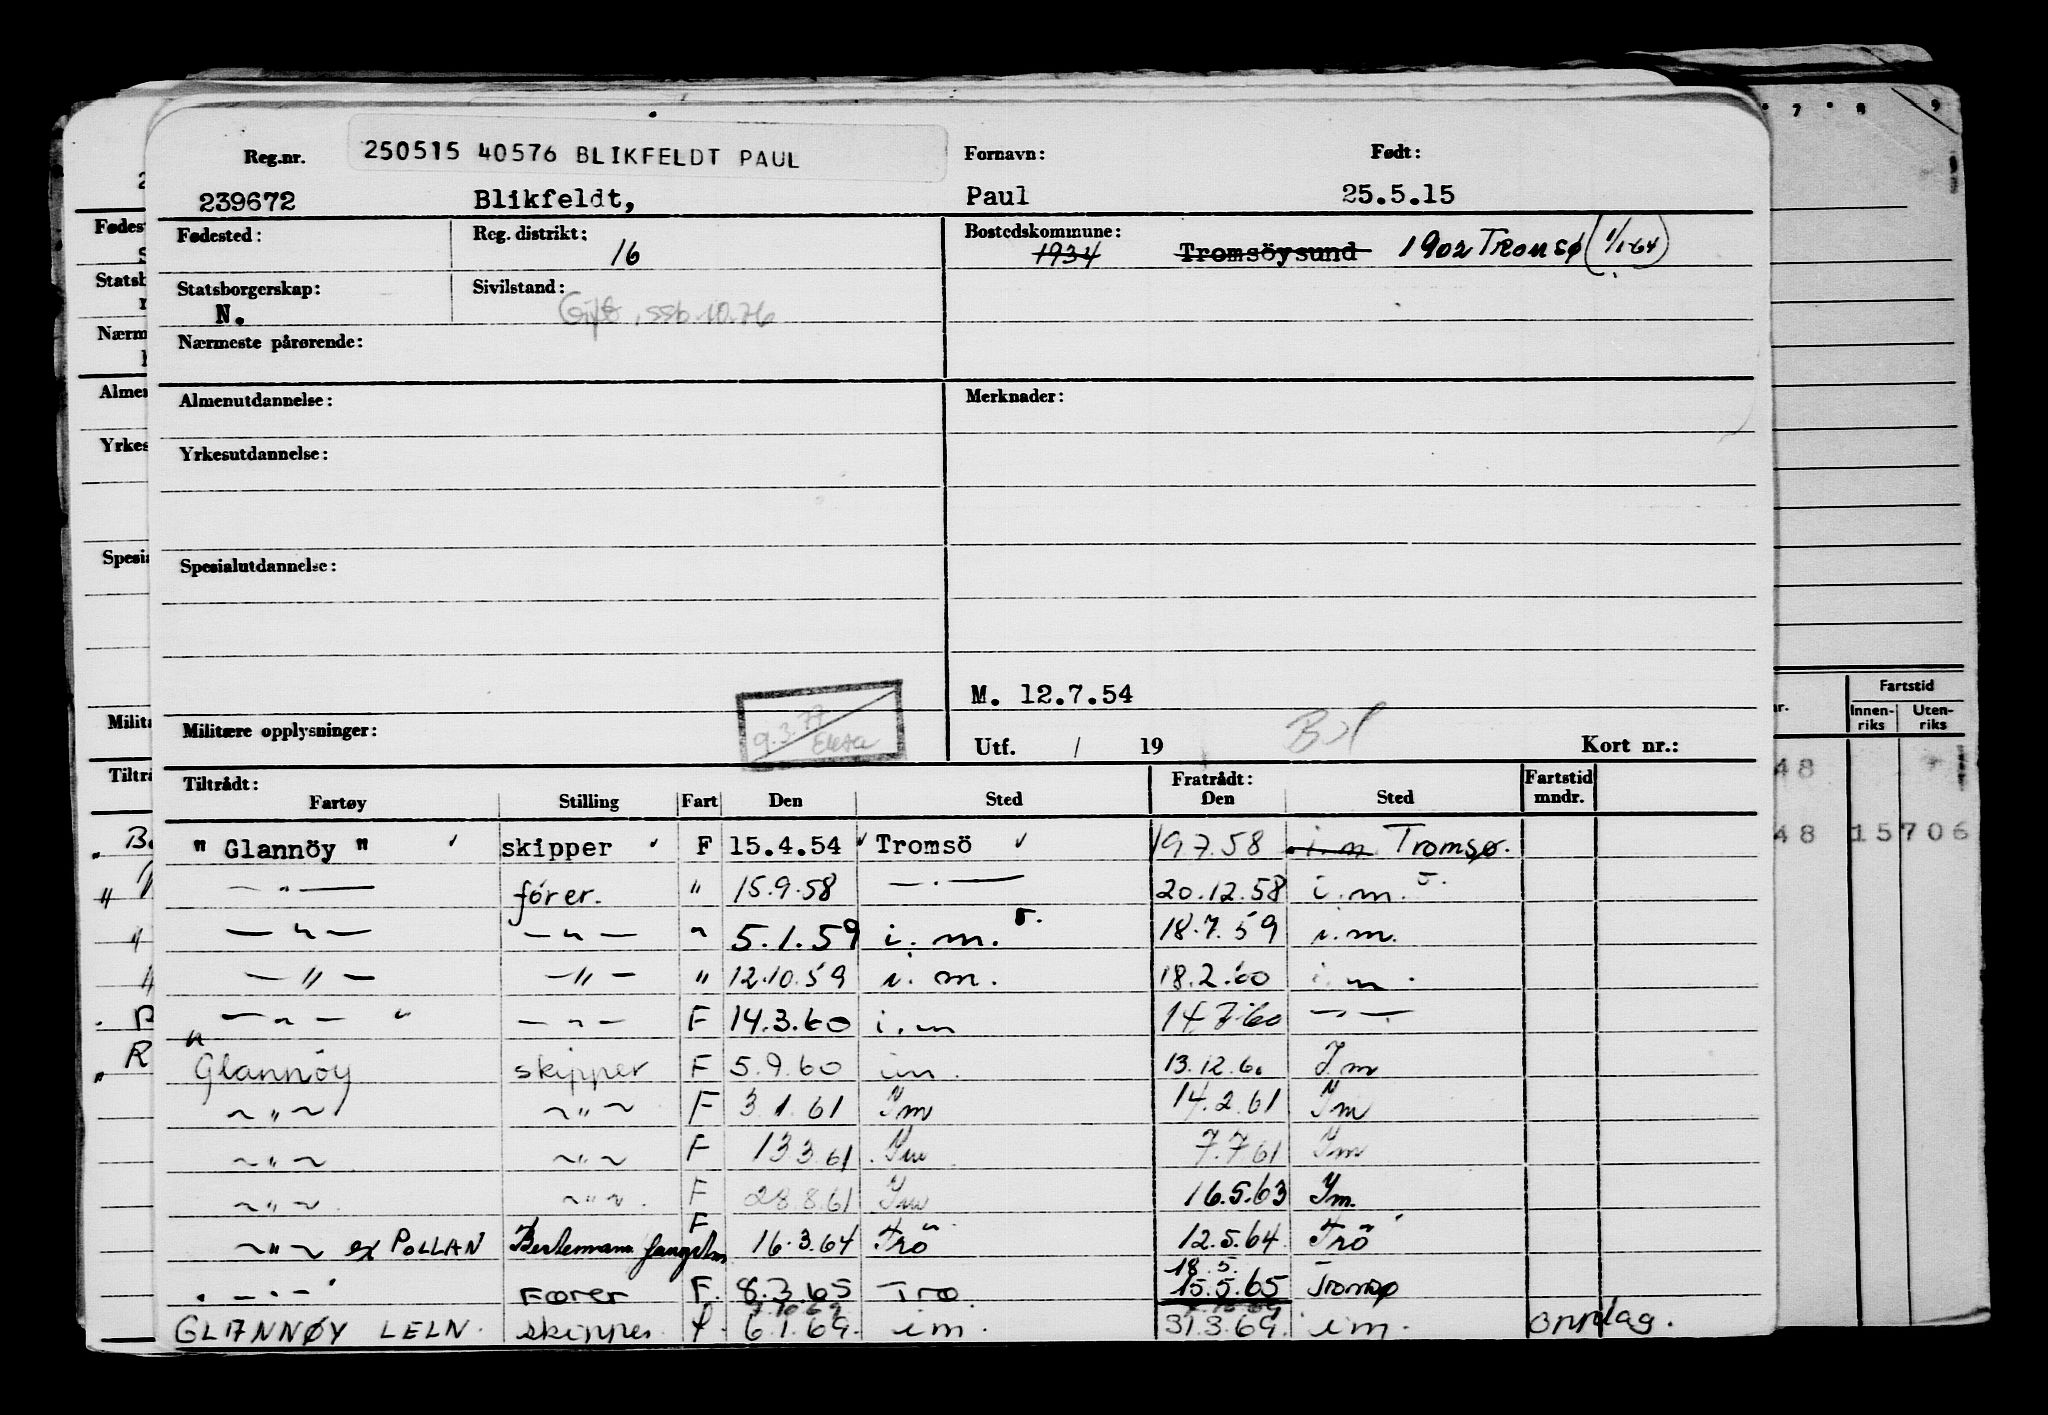 250515 40576 BLIKFELDT PAUL
Reg.nr. Fornavn: Født:
239672 Blikfeldt, Paul 25.5.15
Fødested: Reg. distrikt: 16 Bostedskommune: 1934 Tromsöysund 1902 Tromsø (1/1-64)
Statsborgerskap: N. Sivilstand: Gift, ssb.10.76
Nærmeste pårørende:
Almenutdannelse: Merknader:
Yrkesutdannelse:
Spesialutdannelse:
M. 12.7.54
Militære opplysninger: 9.3.77 Utf. / 19 Kort nr.:
Tiltrådt: Fratrådt: Fartstid
Fartøy Stilling Fart Den Sted Den Sted mndr.
" Glannöy " skipper F 15.4.54 Tromsö 19.7.58 i.m Tromsø.
— " — fører. " 15.9.58 — . — 20.12.58 i.m.
— " — — " — " 5.1.59 i.m. 18.7.59 i.m.
— " — — " — " 12.10.59 i.m. 18.2.60 i.m.
— " — — " — F 14.3.60 i.m 14.7.60 — " —
" Glannöy skipper F 5.9.60 im. 13.12.60 Im
~ " ~ ~ " ~ F 3.1.61 Im 14.2.61 Im
~ " ~ ~ " ~ F 13 3.61 Im 7.7 61 Im
~ " ~ ~ " ~ F 28.8.61 Im 16.5.63 Im.
~ " ~ ex POLLAN Bestemann F 16.3.64 Trö 12.5.64 Trö
18.5.
" — " — Fører F. 8.3.65 Trø. 15.5.65 Tromsø
GLANNØY LELN. skipper. f. 6.1.69. im. 31.3.69. im. opplag.
7 8 9
Fartstid
Innen-riks Uten-riks
48
48 15706